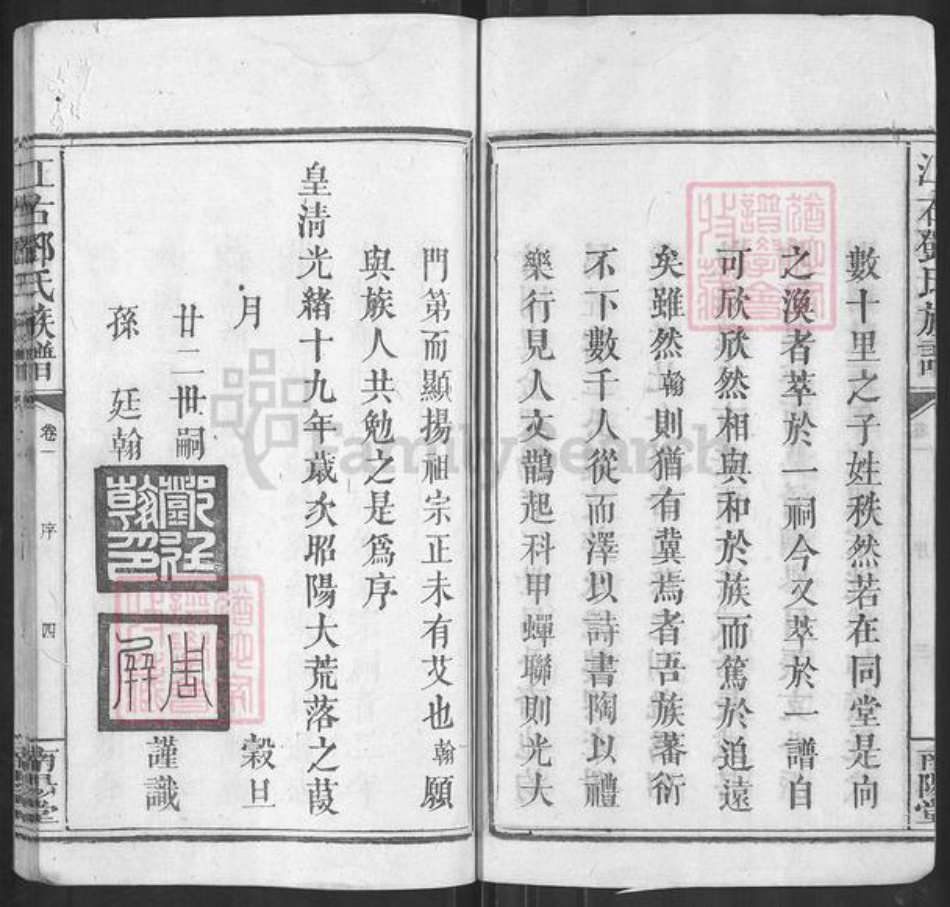 數十里之子姓秩然若在同堂是向
之渙者萃於一祠今又萃於一譜自
可欣欣然相與和於族而篤於追遠
矣雖然翰則猶有冀焉者吾族蕃衍
不下數千人從而澤以詩書陶以禮
樂行見人文鵲起科甲蟬聯則光大
門第而顯揚祖宗正未有艾也翰願
與族人共勉之是爲序
皇清光緒十九年歲次昭陽大荒落之葭
月 穀旦
廿二世嗣
孫 廷翰
謹識
鄧廷翰印
周屏
江右鄧氏族譜 卷一 序 四 南陽堂
江右鄧氏族譜
南陽堂
FamilySearch